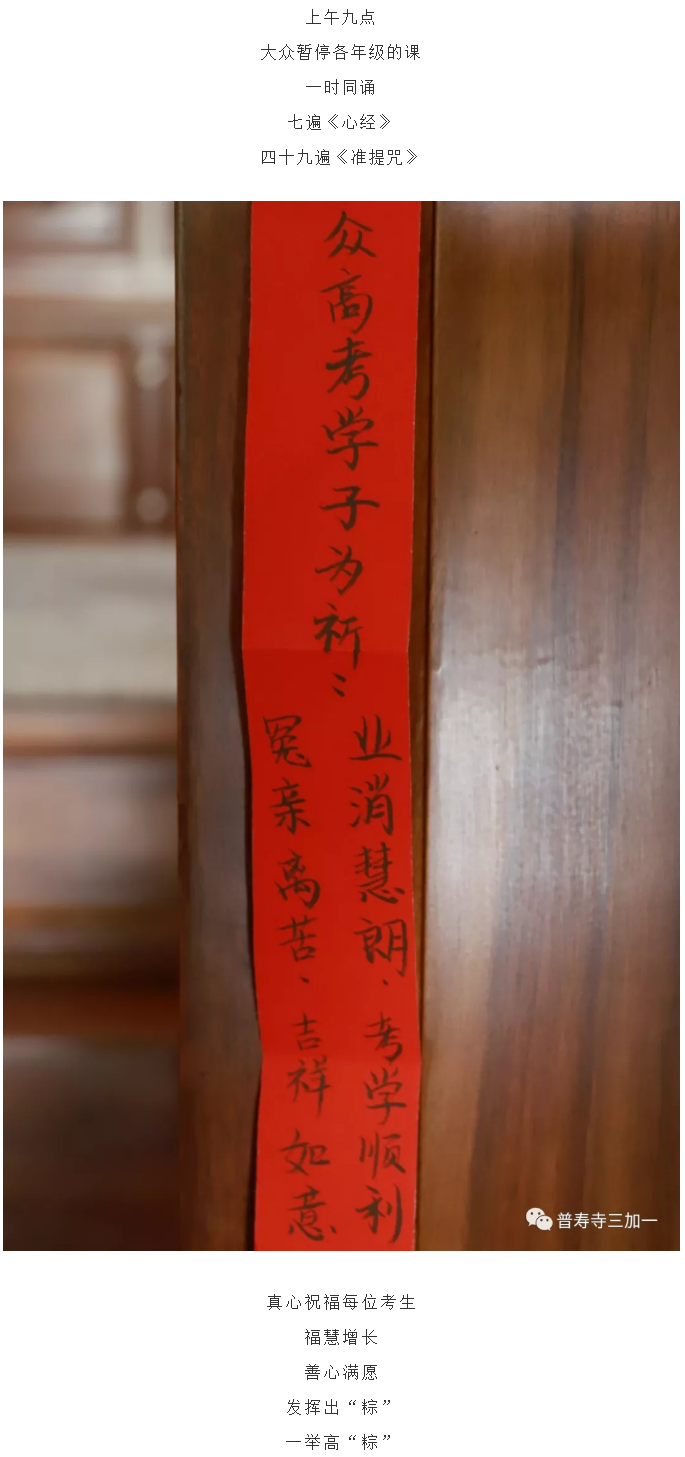 上午九点
大众暂停各年级的课
一时同诵
七遍《心经》
四十九遍《准提咒》
众高考学子为祈：
业消慧朗、考学顺利
冤亲离苦、吉祥如意
普寿寺三加一
真心祝福每位考生
福慧增长
善心满愿
发挥出“粽”
一举高“粽”